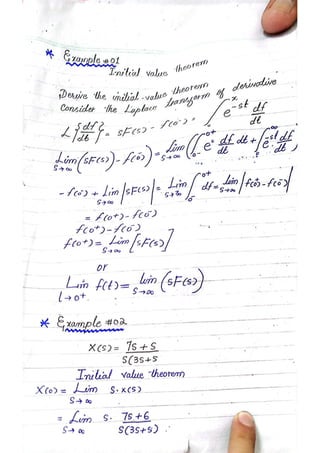 * Example #01
Initial value theorem
Derive the initial-value theorem
Consider the Laplace transform of derivative
L{df/dt} = sF(s) - f(0⁻) = ∫ e^-st df/dt
Lim s→∞ (sF(s)) - f(0⁻) = Lim s→∞ (∫ 0⁻ 0⁺ e⁰ df/dt dt + ∫ e^-st df/dt)
- f(0⁻) + Lim s→∞ |sF(s)| = Lim s→∞ ∫ 0⁻ 0⁺ df = Lim s→∞ |f(0⁺) - f(0⁻)|
= f(0+) - f(0⁻)
f(0+) - f(0⁻)
f(0+) = Lim s→∞ [sF(s)]
or
Lim t→0+ f(t) = Lim s→∞ (sF(s))
* Example #02
X(s) = 7s+5 / s(3s+5
Initial value theorem
X(0) = Lim s→∞ s. x(s)
= Lim s→∞ s. 7s+6 / s(3s+5)